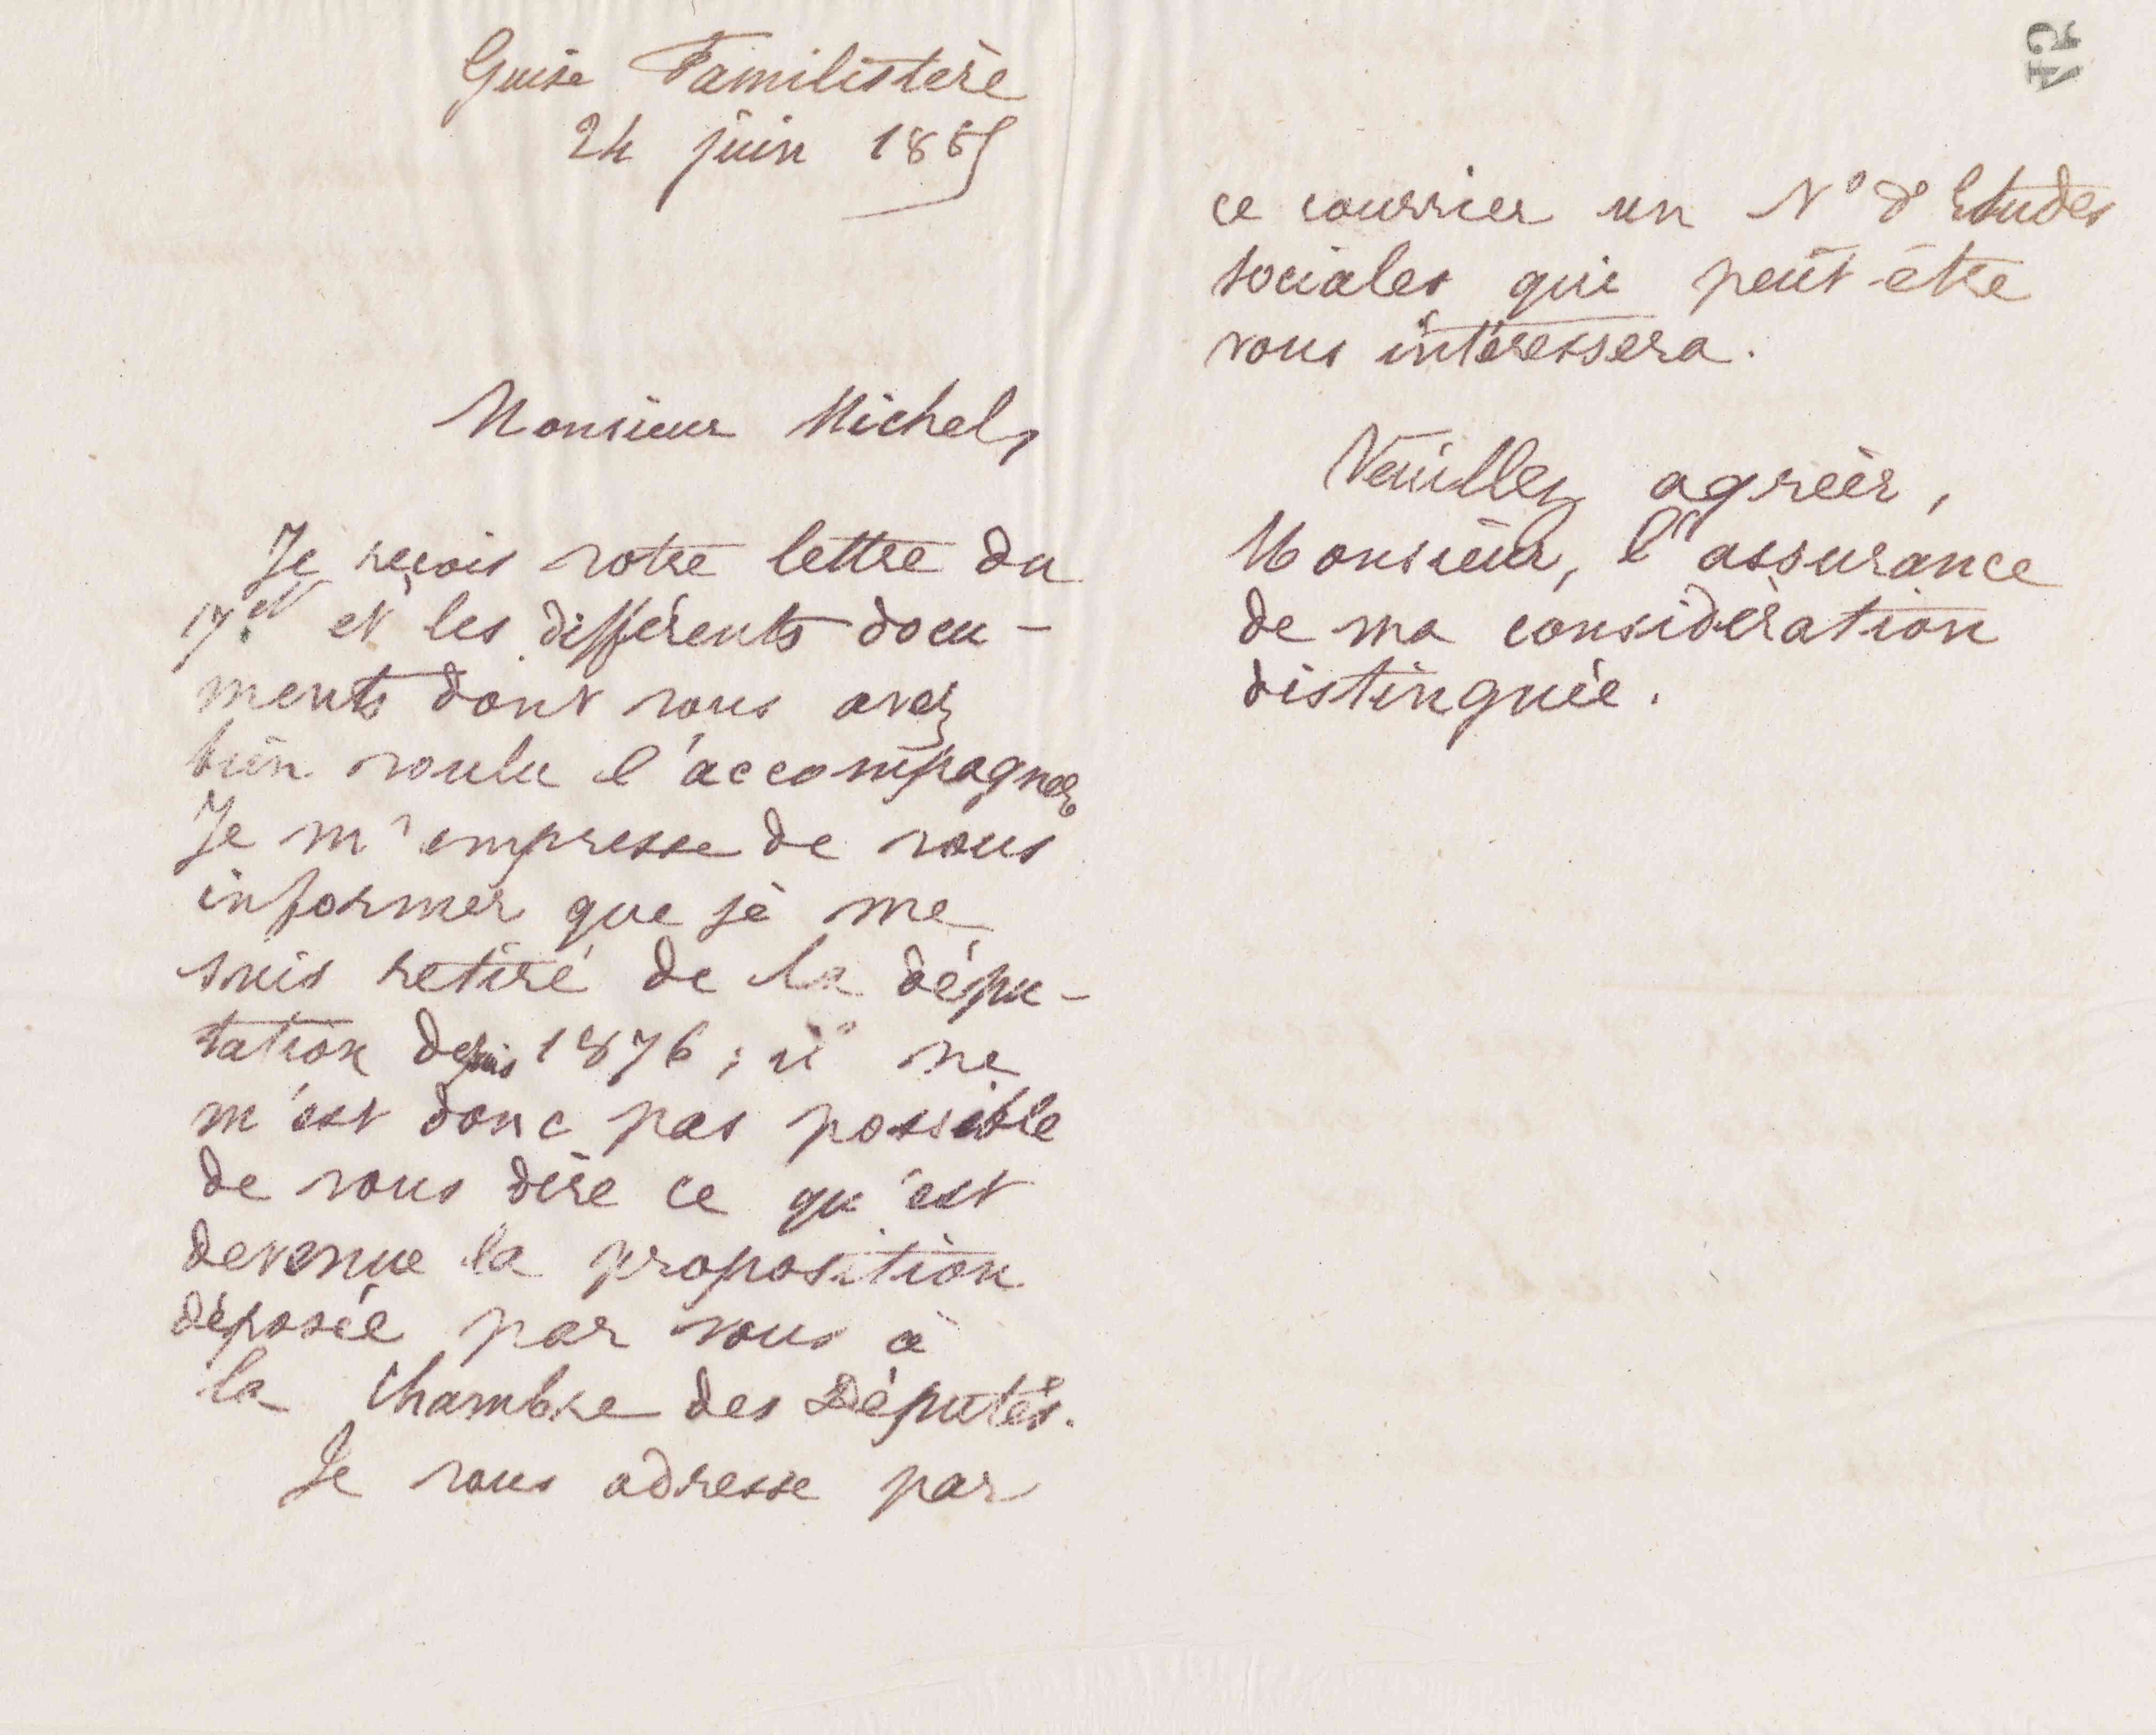 Guise Familistère
24 juin 1885
Monsieur Michel,
Je reçois votre lettre du
17 et les différents docu-
ments dont vous avez
bien voulu l'accompagner.
Je m'empresse de vous
informer que je me
suis retiré de la dépu-
tation depuis 1876 ; il ne
m'est donc pas possible
de vous dire ce qu'est
devenue la proposition
déposée par vous à
la Chambre des Députés.
Je vous adresse par
ce courrier un N° d'Etudes
sociales qui peut-être
vous intéressera.
Veuillez agréer,
Monsieur, l'assurance
de ma considération
distinguée.